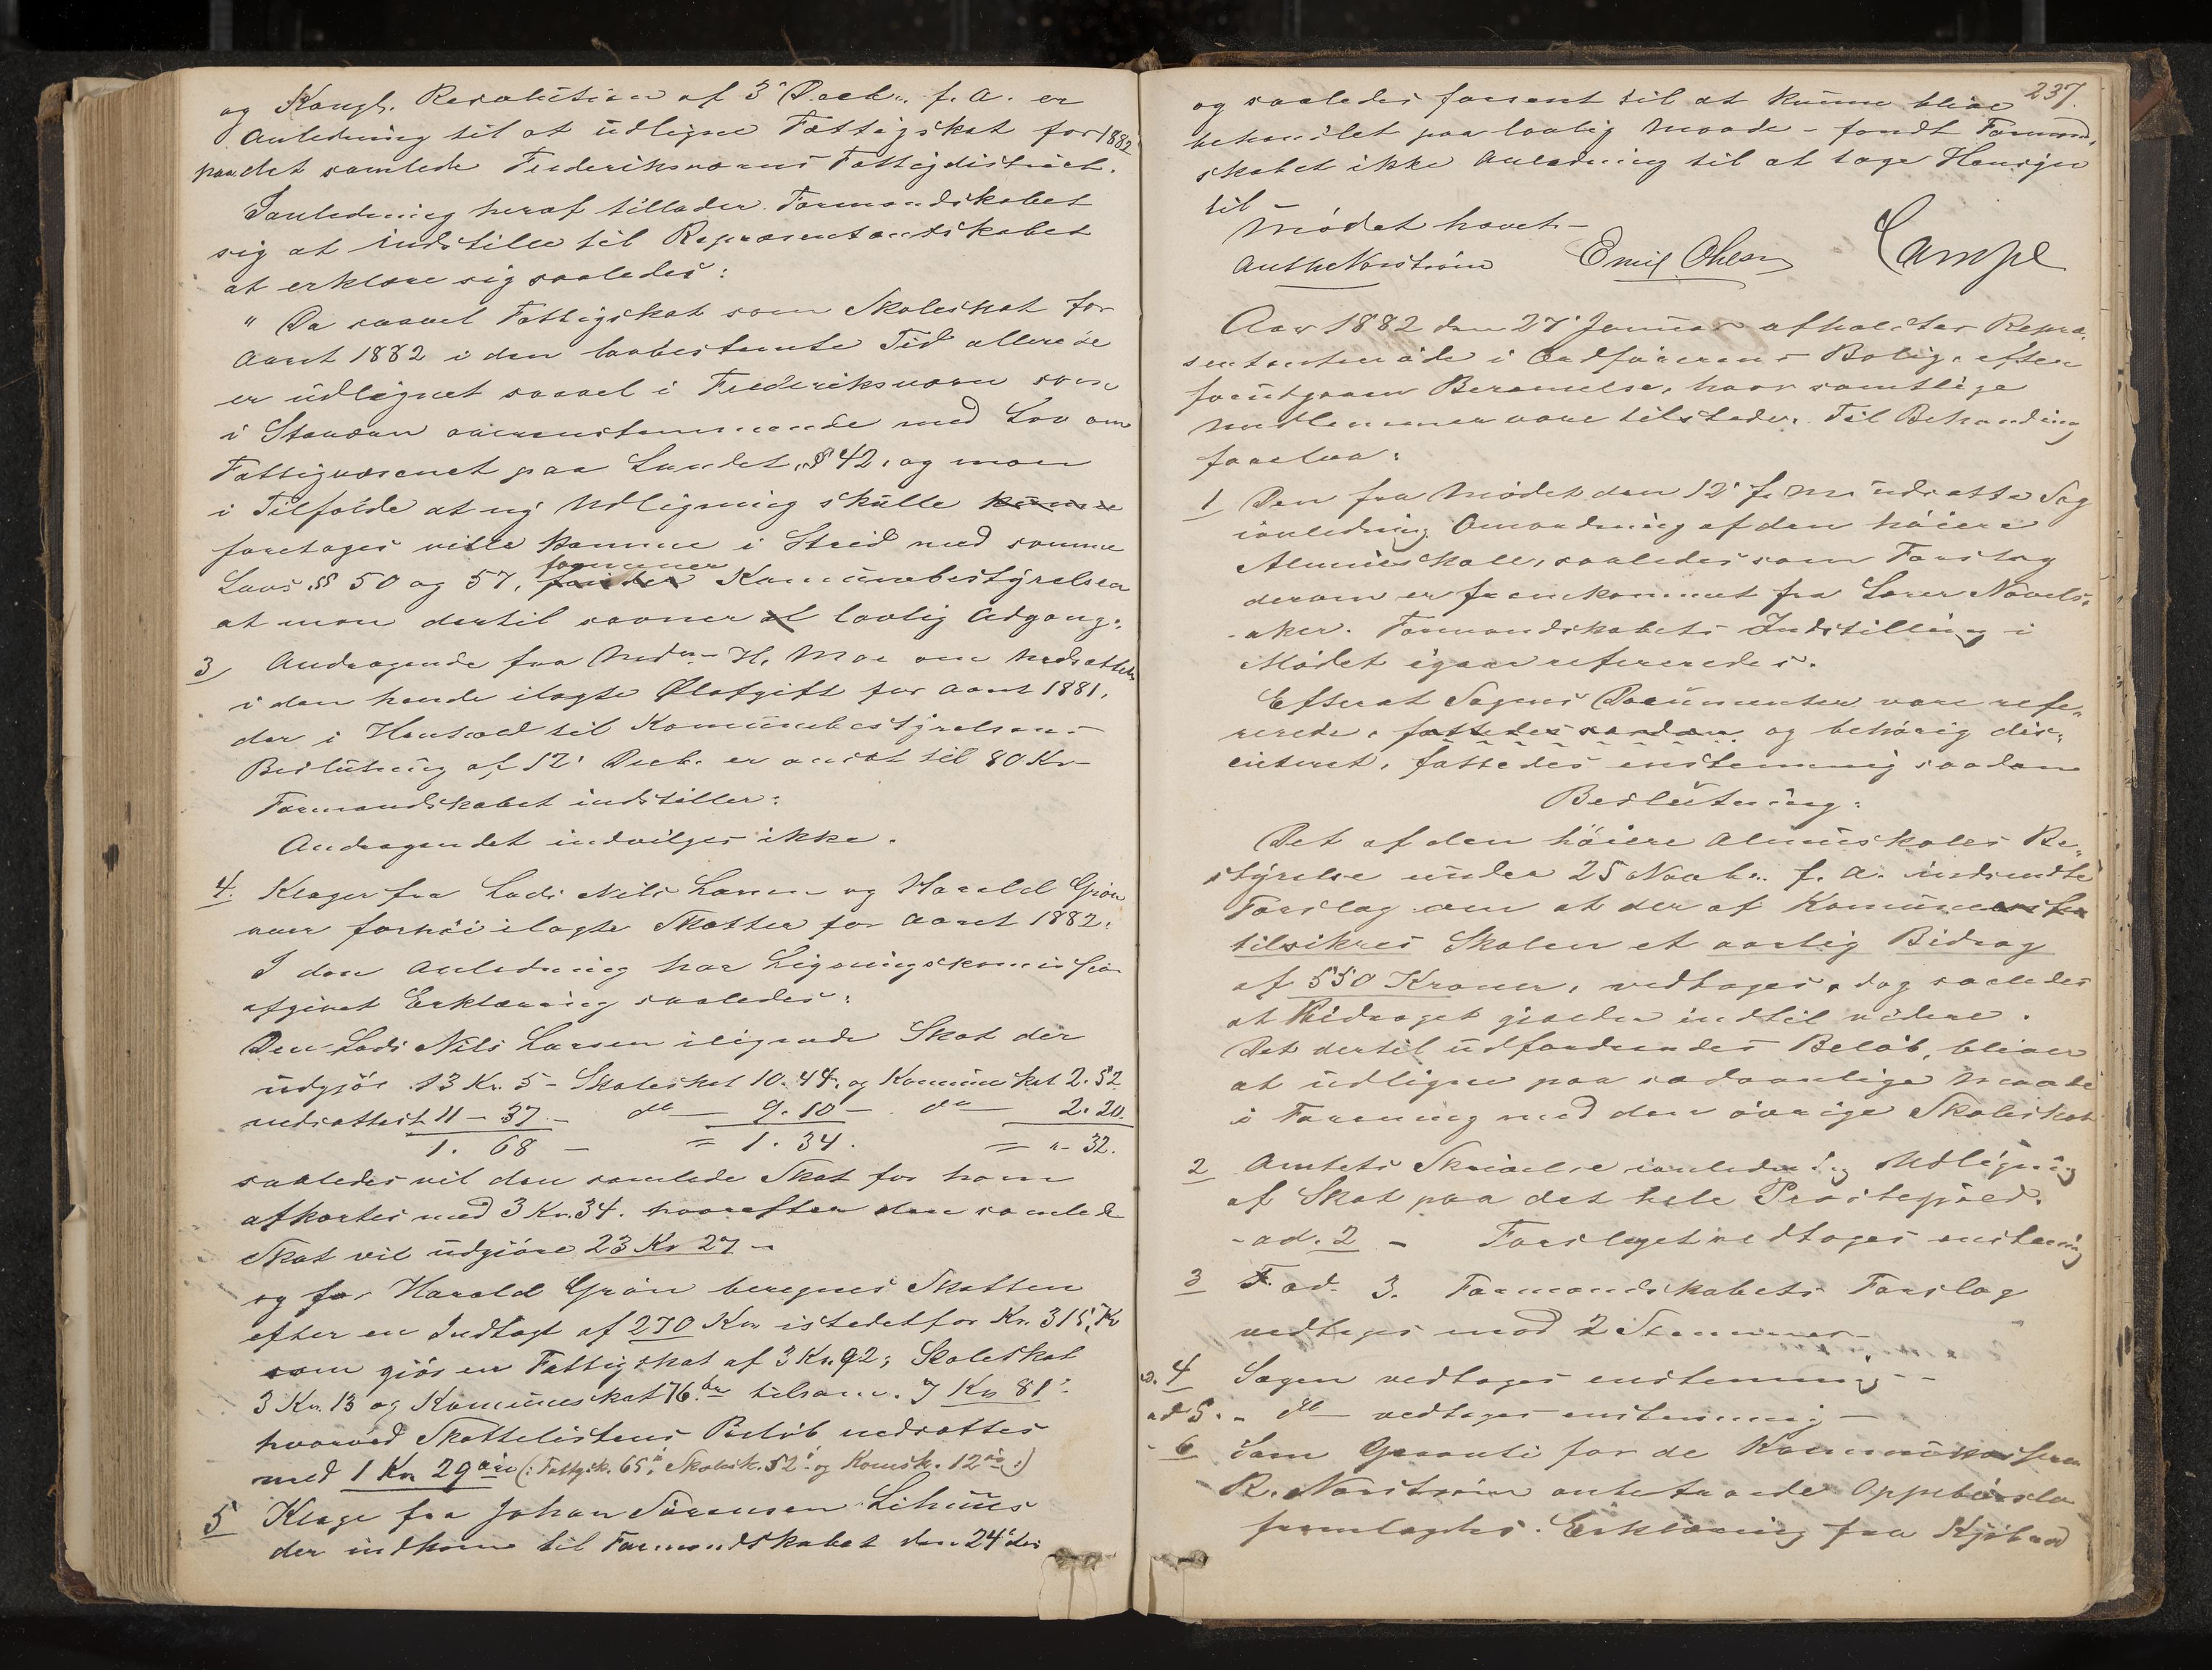 og Kongl. Resolution af 3' Decbr. f. A. er
Anledning til at üdligne Fattigskat for 1882
paa det samlede Frederiksværns Fattigdistrict.
I anledning heraf tillader Formandskabet
sig at indstille til Repræsentandskabet
at erklære sig saaledes:
" Da saavel Fattigskat som Skoleskat for
Aaret 1882 i den lovbestemte Tid allerede
er üdlignet saavel i Frederiksværn som
i Staværn overenstemmende med Lov om
Fattigvæsenet paa Landet, § 42. og man
i Tilfælde at ny Udligning skülle künne
foretages vilde komme i Strid med samme
Lovs §§ 50 og 57, finder Kommünebestyrelsen
formener
at man dertil savner al lovlig Adgang."
3 Andragende fra Mad. H. Moe om Nedsættelse
i den hende ilagte Ølafgift for Aaret 1881,
der i Henhold til Komünebestyrelsens
Beslütning af 12' Decb. er ansat til 80 Kr -
Formandskabet indstiller:
Andragendet indvilges ikke.
4. Klager fra Lods Nils Larsen og Harald Grøn
over forhöi ilagte Skatter for Aaret 1882.
I den Anledning har Ligningskommission
afgivet Erklæring saaledes:
Den Lods Nils Larsen ilignede Skat der
üdgjör 13 Kr. 5 - Skoleskat 10. 44. og Kommüneskat 2. 52
nedsættes t. 11 - 37 - do — 9. 10 - do — 2. 20.
1. 68 - = 1. 34. = " - 32.
saaledes vil den samlede Skat for ham
afkortes med 3 Kr. 34. hvorefter den samlede
Skat vil üdgjöre 23 Kr 27 -
og for Harald Grön beregnes Skatten
efter en Indtægt af 270 Kr istedetfor Kr. 315, Kr
som gjör en Fattigskat af 3 Kr. 92; Skoleskat
3 Kr. 13 og Komüneskat 76 öre tilsam. 7 Kr 81 -
hvorved Skattelistens Belöb nedsættes
med 1 Kr 29 öre (: Fattigsk. 65, Skolesk. 52 og Komsk. 12 :)
5 Klage fra Johan Sörensen Lihüüs
der indkom til Formandskabet den 24' des
237.
og saaledes forsent til at künne blive
behandlet paa lovlig Maade - fandt Formand-
skabet ikke Anledning til at tage Hensyn
til
Mödet hævet -
Emil Olsen Lampe
Aar 1882 den 27' Januar afholdtes Repræ-
sentantmöde i Ordförerens Bolig, efter
forüdgaaen Berammelse, hvor samtlige
Medlemmer vare tilstede. Til Behandling
forelaa:
1 Den fra Mödet den 12' f. M. üdsatte Sag
ianledning Omordning af den höiere
Almüeskole, saaledes som Forslag
derom er fremkommet fra Lærer Navels-
-aker. Formandskabets Indstilling i
Mödet igaar refereredes.
Efterat Sagens Documenter vare refe-
rerede, fattedes saadan og behörig dis-
cüteret, fattedes enstemmig saadan
Beslütning:
Det af den höiere Almüskoles Be-
styrelse ünder 25 Novbr. f. A. indsendte
Forslag om at der af Komünen
tilsikres Skolen et aarlig Bidrag
af 550 Kroner, vedtages, dog saaledes
at Bidraget gjælder indtil videre.
Det dertil üdfordrendes Belöb, bliver
at üdligne paa sædvanlige Maade
i Forening med den övrige Skoleskat
2 Amtets Skrivelse ianledning Udligning
af Skat paa det hele Præstegjeld.
- ad. 2 - Forslaget vedtages enstemmig
3 ad. 3. Formandskabets Forslag
vedtages mod 2 Stemmer -
ad. 4 Sagen vedtages enstemmig - -
ad 5. - do — vedtages enstemmig —
- 6 Som Garanti for de Kommünekasserer
R. Norström anbetroede Oppebörsler
fremlagdes Erklæring fra Kjöbmd